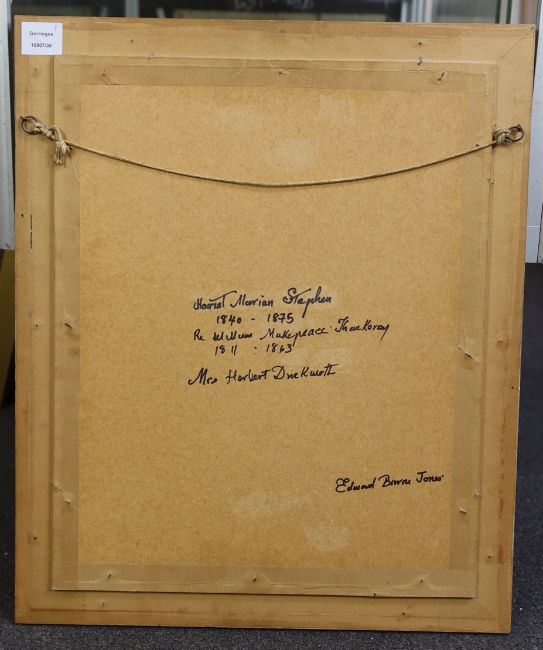 Gorringes
10007/30
Harriet Marian Stephen
1840 - 1875
Re William Makepeace Thackeray
1811 - 1863
Mrs Herbert Duckworth
Edward Burne Jones